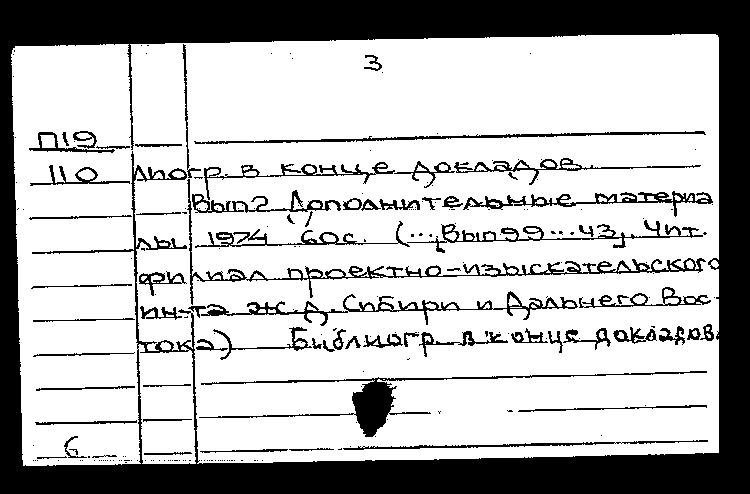 3
П19
110 лиогр в конце докладов.
Вып2 Дополнительные материа
лы 1974 60с. (...Вып99...43, Чит.
филиал проектно-изыскательского
ин-та ж.д. Сибири и Дальнего Вос-
тока) Библиогр в конце докладов.
6